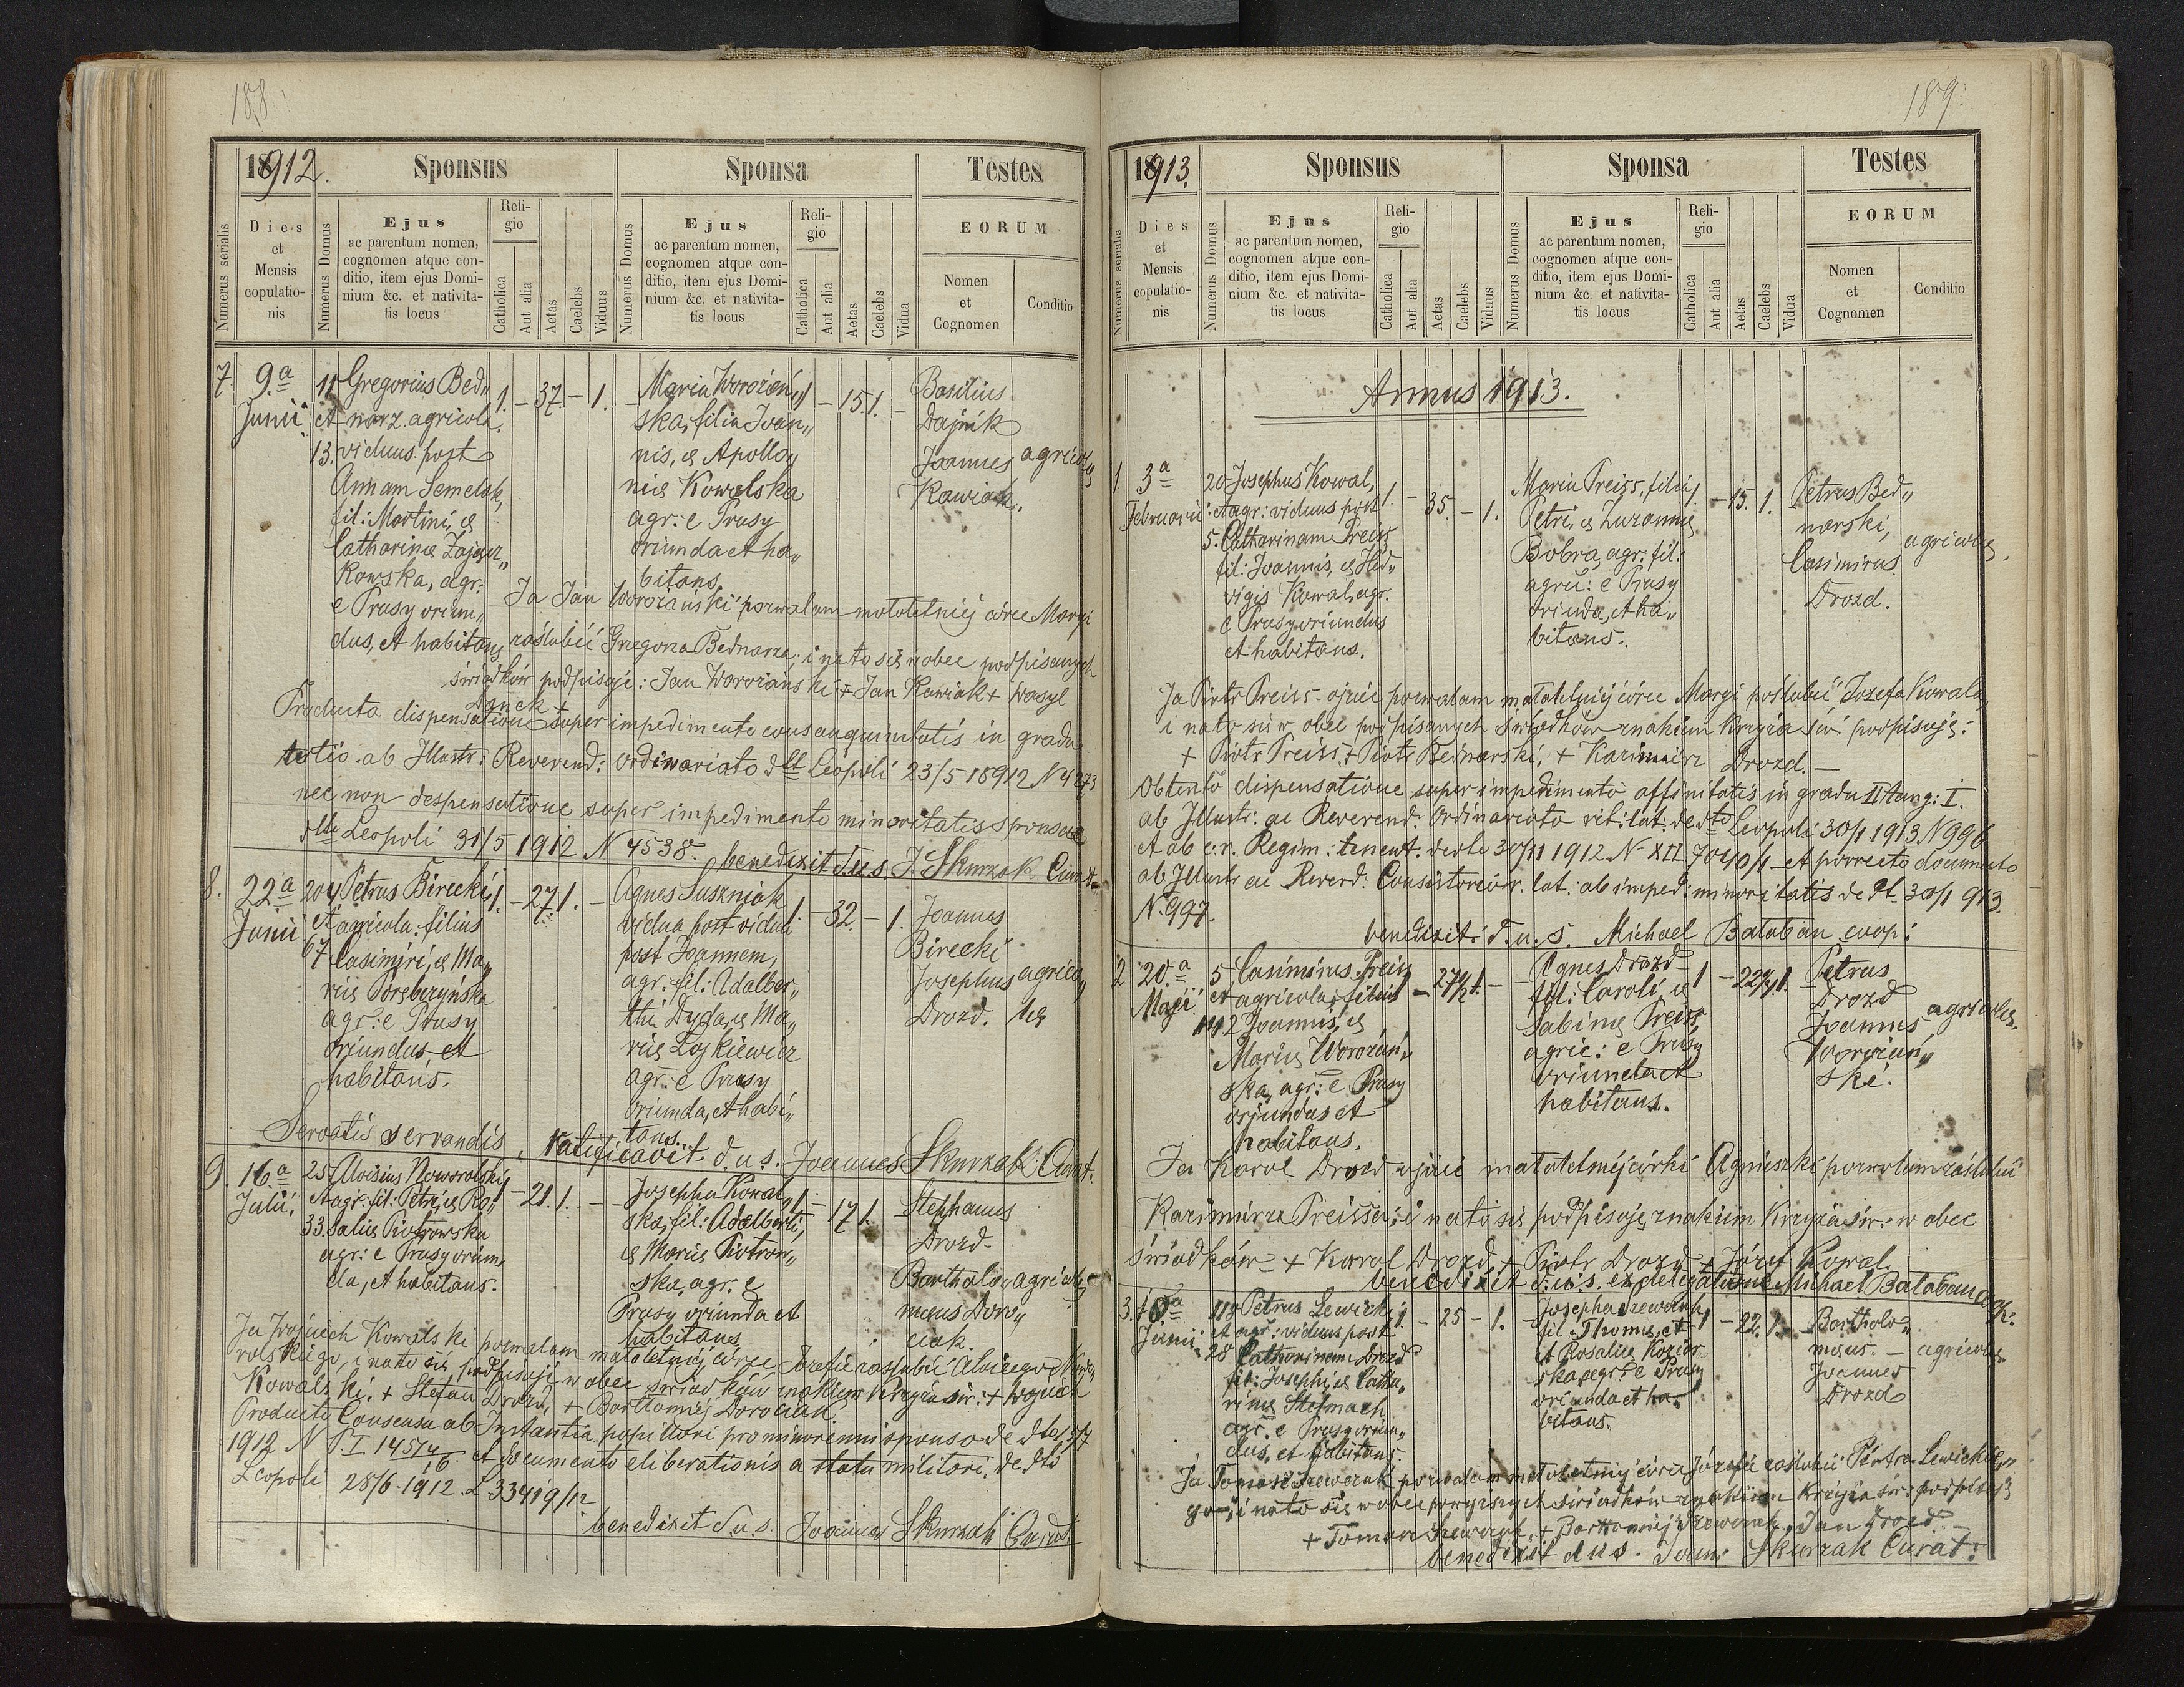 188.
1912.
Sponsus
Sponsa
Testes
Numerus serialis
Dies
et
Mensis
copulatio-
nis
Numerus Domus
Ejus
ac parentum nomen,
cognomen atque con-
ditio, item ejus Domi-
nium &c. et nativita-
tis locus
Reli-
gio
Catholica
Aut alia
Aetas
Caelebs
Viduus
Numerus Domus
Ejus
ac parentum nomen,
cognomen atque con-
ditio, item ejus Domi-
nium &c. et nativita-
tis locus
Reli-
gio
Catholica
Aut alia
Aetas
Caelebs
Vidua
EORUM
Nomen
et
Cognomen
Conditio
7
9.a
Junii
11
et
13.
Gregorius Bed„
narz. agricola.
viduus post
Annam Semelak,
fil: Martini, et
Catharinæ Zającz„
kowska, agr:
e Prusy oriun„
dus, et habitans
1. – 37 – 1.
Maria Worożań„
ska, filia Joan„
nis, et Apollo„
niæ Kowalska
agr: e Prusy
oriunda et ha„
bitans.
1 – 15 1. –
Basilius
Dajnik
Joannes
Kawiak.
agricolæ
Ja Jan Worożański pozwalam małoletniej córce Maryi
zaślubić Gregorza Bednarza; i na to się wobec podpisanych
świadków podpisuję: Jan Worożański + Jan Kawiak + Wasyl
Danek +
Producta dispensatione super impedimento consanguinitatis in gradu
tertio ab Illustr: Reverend: Ordinariato dtt Leopoli 23/5 1912 N 4273
nec non despensatione super impedimento minoritatis sponsae
dtto Leopoli 31/5 1912 N 4538. benedixit d.u.s. J. Skurzak Curat.
8.
22a
Junii
204
et
67
Petrus Birecki,
agricola: filius
Casimiri, et Ma„
riæ Porębczyńska
agr: e Prusy
oriundus, et
habitans.
1. – 27 1. –
Agnes Suszniak
vidua post vidua
post Joannem,
agr: fil: Adalber„
thi Dyda, et Ma„
riæ Łojkiewicz
agr: e Prusy
oriunda, et habi„
tans.
1. – 32 – 1.
Joannes
Birecki
Josephus
Drozd.
agrico„
læ
Servatis servandis, ratificavit. d.u.s. Joannes Skurzak Curat.
9.
16.a
Julii.
25
et
33.
Aloisius Noworolski,
agr: fil: Petri, et Ro„
saliæ Piotrowska
agr: e Prusy oriun„
da, et habitans.
1 – 21 1. –
Josepha Kowal„
ska, fil: Adalberti,
et Mariæ Piotrow„
ska, agr. e
Prusy oriunda et
habitans
1 – 17 1.
Stephanus
Drozd –
Bartholo„
maeus Doro„
ciak.
agricolæ
Ja Wojciech Kowalski pozwalam małoletniej córce Józefie zaślubić Aloizego Nowo„
rolskiego, i na to się podpisuję w obec świadków znakiem krzyża św: + Wojciech
Kowalski. + Stefan Drozd, + Bartłomiej Dorociak.
Producto Consensu ab Instantia pupillari pro minorenni sponso de dto 15/7
1912 N P. I 145/4/6 et documento eliberationis a statu militari, de dtô
Leopoli 28/6 1912. L 33419/12
benedixit d.u.s. Joannes Skurzak Curat
189.
1913.
Sponsus
Sponsa
Testes
Numerus serialis
Dies
et
Mensis
copulatio-
nis
Numerus Domus
Ejus
ac parentum nomen,
cognomen atque con-
ditio, item ejus Domi-
nium &c. et nativita-
tis locus
Reli-
gio
Catholica
Aut alia
Aetas
Caelebs
Viduus
Numerus Domus
Ejus
ac parentum nomen,
cognomen atque con-
ditio, item ejus Domi-
nium &c. et nativita-
tis locus
Reli-
gio
Catholica
Aut alia
Aetas
Caelebs
Vidua
EORUM
Nomen
et
Cognomen
Conditio
Annus 1913.
1
3a
Februarii
20
et
5.
Josephus Kowal,
agr: viduus post
Catharinam Preiss
fil: Joannis, et Hed„
vigis Kowal, agr.
e Prusy oriundus
et habitans.
1. – 35. – 1.
Maria Preiss, filia
Petri, et Zuzannæ
Bobra, agr: fil:
agric: e Prusy
oriunda, et ha„
bitans.
1. – 15. 1. –
Petrus Bed„
narski,
Casimirus
Drozd.
agricolæ.
Ja Piotr Preiss – ojciec pozwalam małoletniej córce Maryi poślubić Józefa Kowala,
i na to się w obec podpisanych świadków znakiem krzyża św. podpisuję:
+ Piotr Preiss, + Piotr Bednarski, + Kazimierz Drozd. –
Obtentô dispensatione super impedimento affinitatis in gradu II tang: I.
ab Illustr: ac Reverend: Ordinariato rit: lat: de dto Leopoli 30/1 1913 N 996
et ab c.r. Regim: tenent. de dto 30/11 1912 N XII 7040/1 – et porrecto documento
ab Illustr ac Reverd: Consistorio r. lat: ab imped: minoritatis de dt. 30/1 913.
N. 997.
benedixit d.u.s. Michael Bałaban coop:
2
20.a
Maji
5
et
142
Casimirus Preiss
agricola, filius
Joannis, et
Mariæ Worożań„
ska, agr: e Prusy
oriundus et
habitans.
1 – 27½ 1. –
Agnes Drozd –
fil: Caroli, et
Sabinæ Preiss,
agric: e Prusy
oriunda et
habitans.
1 – 22¼ 1. –
Petrus
Drozd
Joannes
Worożań„
ski.
agricolæ.
Ja Karol Drozd ojciec małoletniej córki Agnieszki pozwalam zaślubić
Kazimierza Preissa; i na to się podpisuję znakiem krzyża św: w obec
świadków + Karol Drozd, + Piotr Drozd, + Józef Kowal.
benedixit d.u.s. ex delegatione Michael Bałaban coop:
3.
10.a
Junii
118
et
28
Petrus Lewicki
agr: viduus post
Catharinam Drozd
fil: Josephi, et Catha„
rinæ Stelmach
agr: e Prusy oriun„
dus, et habitans.
1. – 25 – 1.
Josepha Szewczuk
fil: Thomæ, et
et Rosaliæ Kozior
ska, agr: e Prusy
oriunda et ha„
bitans.
1 – 22. 1.
Bartholo„
maeus –
Joannes
Drozd
agricolæ
Ja Tomasz Szewczuk pozwalam małoletniej córce Józefie zaślubić Piotra Lewickie„
go; i na to się w obec podpisanych świadków znakiem krzyża św: podpisuję
+ Tomasz Szewczuk, + Bartłomiej Szewczuk, Jan Drozd
benedixit d.u.s. Joann: Skurzak Curat: